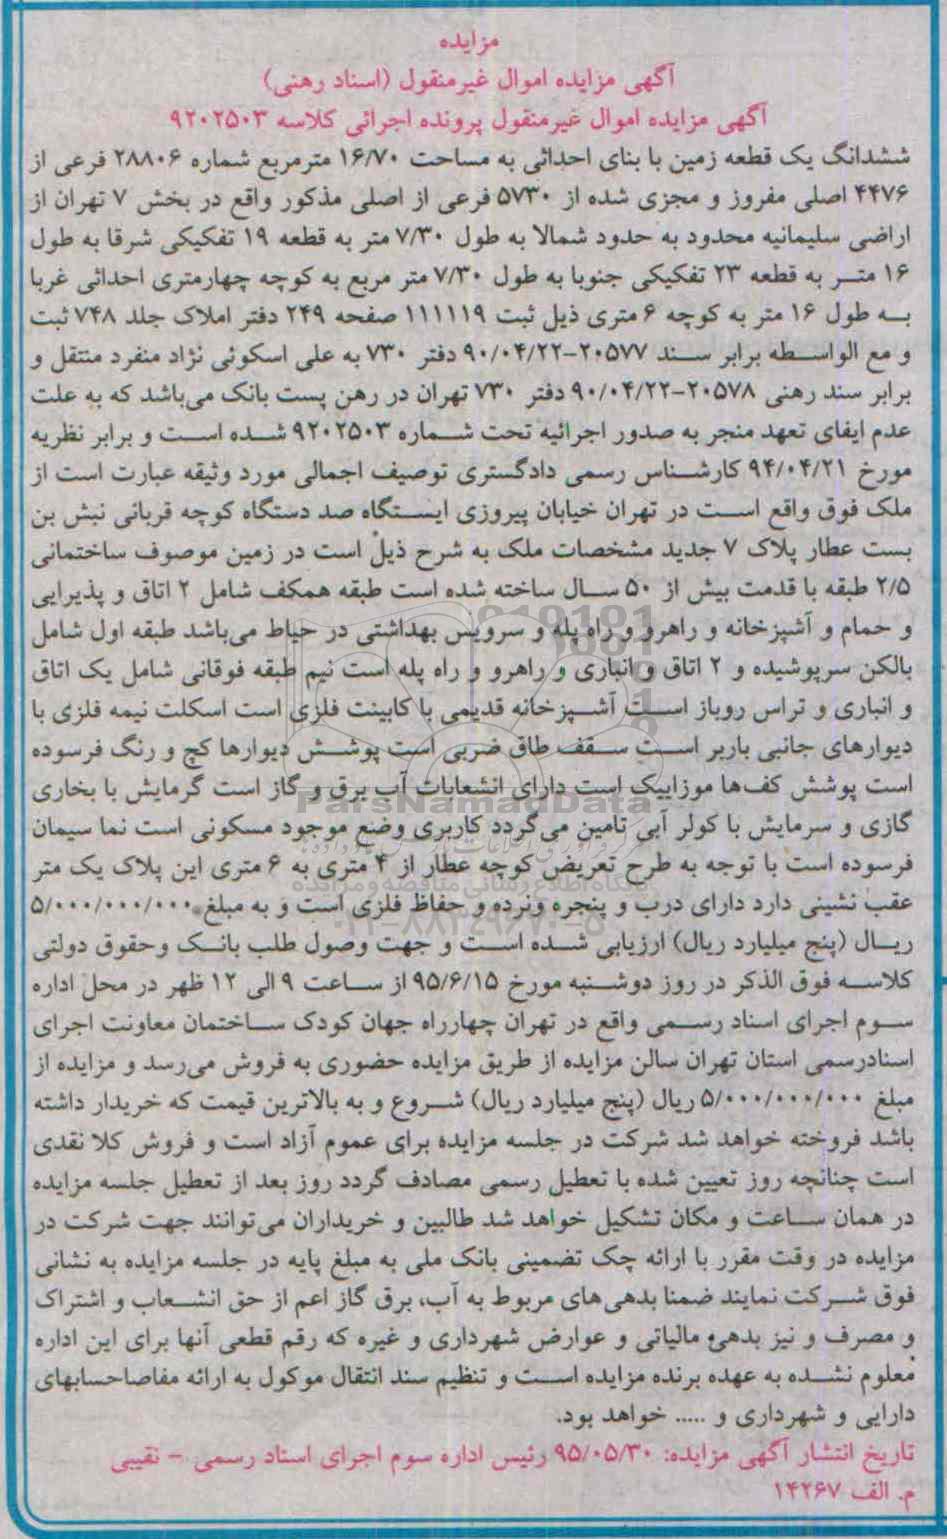 مزایده
آگهی مزایده اموال غیرمنقول (اسناد رهنی)
آگهی مزایده اموال غیرمنقول پرونده اجرائی کلاسه ۹۲۰۲۵۰۳
ششدانگ یک قطعه زمین با بنای احداثی به مساحت ۱۶/۷۰ مترمربع شماره ۲۸۸۰۶ فرعی از
۴۴۷۶ اصلی مفروز و مجزی شده از ۵۷۳۰ فرعی از اصلی مذکور واقع در بخش ۷ تهران از
اراضی سلیمانیه محدود به حدود شمالا به طول ۷/۳۰ متر به قطعه ۱۹ تفکیکی شرقا به طول
۱۶ متر به قطعه ۲۳ تفکیکی جنوبا به طول ۷/۳۰ متر مربع به کوچه چهارمتری احداثی غربا
به طول ۱۶ متر به کوچه ۶ متری ذیل ثبت ۱۱۱۱۱۹ صفحه ۲۴۹ دفتر املاک جلد ۷۴۸ ثبت
و مع الواسطه برابر سند ۲۰۵۷۷-۹۰/۰۴/۲۲ دفتر ۷۳۰ به علی اسکوئی نژاد منفرد منتقل و
برابر سند رهنی ۲۰۵۷۸-۹۰/۰۴/۲۲ دفتر ۷۳۰ تهران در رهن پست بانک می‌باشد که به علت
عدم ایفای تعهد منجر به صدور اجرائیه تحت شماره ۹۲۰۲۵۰۳ شده است و برابر نظریه
مورخ ۹۴/۰۴/۲۱ کارشناس رسمی دادگستری توصیف اجمالی مورد وثیقه عبارت است از
ملک فوق واقع است در تهران خیابان پیروزی ایستگاه صد دستگاه کوچه قربانی نبش بن
بست عطار پلاک ۷ جدید مشخصات ملک به شرح ذیل است در زمین موصوف ساختمانی
۲/۵ طبقه با قدمت بیش از ۵۰ سال ساخته شده است طبقه همکف شامل ۲ اتاق و پذیرایی
و حمام و آشپزخانه و راهرو و راه پله و سرویس بهداشتی در حیاط می‌باشد طبقه اول شامل
بالکن سرپوشیده و ۲ اتاق و انباری و راهرو و راه پله است نیم طبقه فوقانی شامل یک اتاق
و انباری و تراس روباز است آشپزخانه قدیمی با کابینت فلزی است اسکلت نیمه فلزی با
دیوارهای جانبی باربر است سقف طاق ضربی است پوشش دیوارها کچ و رنگ فرسوده
است پوشش کف‌ها موزاییک است دارای انشعابات آب برق و گاز است گرمایش با بخاری
گازی و سرمایش با کولر آبی تامین می‌گردد کاربری وضع موجود مسکونی است نما سیمان
فرسوده است با توجه به طرح تعریض کوچه عطار از ۴ متری به ۶ متری این پلاک یک متر
عقب نشینی دارد دارای درب و پنجره ونرده و حفاظ فلزی است و به مبلغ ۵/۰۰۰/۰۰۰/۰۰۰
ریال (پنج میلیارد ریال) ارزیابی شده است و جهت وصول طلب بانک وحقوق دولتی
کلاسه فوق الذکر در روز دوشنبه مورخ ۹۵/۶/۱۵ از ساعت ۹ الی ۱۲ ظهر در محل اداره
سوم اجرای اسناد رسمی واقع در تهران چهارراه جهان کودک ساختمان معاونت اجرای
اسنادرسمی استان تهران سالن مزایده از طریق مزایده حضوری به فروش می‌رسد و مزایده از
مبلغ ۵/۰۰۰/۰۰۰/۰۰۰ ریال (پنج میلیارد ریال) شروع و به بالاترین قیمت که خریدار داشته
باشد فروخته خواهد شد شرکت در جلسه مزایده برای عموم آزاد است و فروش کلا نقدی
است چنانچه روز تعیین شده با تعطیل رسمی مصادف گردد روز بعد از تعطیل جلسه مزایده
در همان ساعت و مکان تشکیل خواهد شد طالبین و خریداران می‌توانند جهت شرکت در
مزایده در وقت مقرر با ارائه چک تضمینی بانک ملی به مبلغ پایه در جلسه مزایده به نشانی
فوق شرکت نمایند ضمنا بدهی‌های مربوط به آب، برق گاز اعم از حق انشعاب و اشتراک
و مصرف و نیز بدهی مالیاتی و عوارض شهرداری و غیره که رقم قطعی آنها برای این اداره
معلوم نشده به عهده برنده مزایده است و تنظیم سند انتقال موکول به ارائه مفاصاحسابهای
دارایی و شهرداری و ..... خواهد بود.
تاریخ انتشار آگهی مزایده: ۹۵/۰۵/۳۰ رئیس اداره سوم اجرای اسناد رسمی - نقیبی
م. الف ۱۴۲۶۷
ParsNamadData
پایگاه اطلاع رسانی مناقصه و مزایده
۰۲۱-۸۸۳۴۹۶۷۰-۵